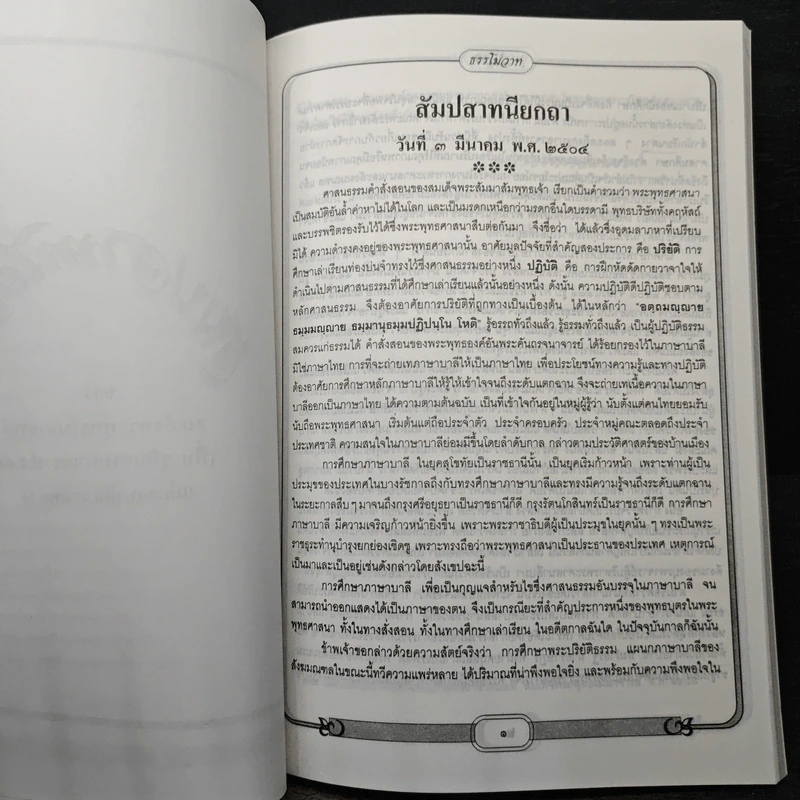 ธรรโมวาท
สัมปสาทนียกถา
วันที่ ๓ มีนาคม พ.ศ. ๒๕๐๔
ศาสนธรรมคำสั่งสอนของสมเด็จพระสัมมาสัมพุทธเจ้า เรียกเป็นคำรวมว่า พระพุทธศาสนา
เป็นสมบัติอันล้ำค่าหาไม่ได้ในโลก และเป็นมรดกเหนือกว่ามรดกอื่นใดบรรดามี พุทธบริษัททั้งคฤหัสถ์
และบรรพชิตรองรับไว้ได้ซึ่งพระพุทธศาสนาสืบต่อกันมา จึงชื่อว่า ได้แล้วซึ่งอุดมลาภหาที่เปรียบ
มิได้ ความดำรงคงอยู่ของพระพุทธศาสนานั้น อาศัยมูลปัจจัยที่สำคัญสองประการ คือ ปริยัติ การ
ศึกษาเล่าเรียนท่องบ่นจำทรงไว้ซึ่งศาสนธรรมอย่างหนึ่ง ปฏิบัติ คือ การฝึกหัดดัดกายวาจาใจให้
ดำเนินไปตามศาสนธรรมที่ได้ศึกษาเล่าเรียนแล้วนั้นอย่างหนึ่ง ดังนั้น ความปฏิบัติดีปฏิบัติชอบตาม
หลักศาสนธรรม จึงต้องอาศัยการปริยัติที่ถูกทางเป็นเบื้องต้น ได้ในหลักว่า "อตฺถมญฺญาย
ธมฺมมญฺญาย ธมฺมานุธมฺมปฏิปนฺโน โหติ" รู้อรรถทั่วถึงแล้ว รู้ธรรมทั่วถึงแล้ว เป็นผู้ปฏิบัติธรรม
สมควรแก่ธรรมได้ คำสั่งสอนของพระพุทธองค์อันพระคันถรจนาจารย์ ได้ร้อยกรองไว้ในภาษาบาลี
มิใช่ภาษาไทย การที่จะถ่ายเทภาษาบาลีให้เป็นภาษาไทย เพื่อประโยชน์ทางความรู้และทางปฏิบัติ
ต้องอาศัยการศึกษาหลักภาษาบาลีให้รู้ให้เข้าใจจนถึงระดับแตกฉาน จึงจะถ่ายเทเนื้อความในภาษา
บาลีออกเป็นภาษาไทย ได้ความตามต้นฉบับ เป็นที่เข้าใจกันอยู่ในหมู่ผู้รู้ว่า นับตั้งแต่คนไทยยอมรับ
นับถือพระพุทธศาสนา เริ่มต้นแต่ถือประจำตัว ประจำครอบครัว ประจำหมู่คณะตลอดถึงประจำ
ประเทศชาติ ความสนใจในภาษาบาลีย่อมมีขึ้นโดยลำดับกาล กล่าวตามประวัติศาสตร์ของบ้านเมือง
การศึกษาภาษาบาลี ในยุคสุโขทัยเป็นราชธานีนั้น เป็นยุคเริ่มก้าวหน้า เพราะท่านผู้เป็น
ประมุขของประเทศในบางรัชกาลถึงกับทรงศึกษาภาษาบาลีและทรงมีความรู้จนถึงระดับแตกฉาน
ในระยะกาลสืบ ๆ มาจนถึงกรุงศรีอยุธยาเป็นราชธานีก็ดี กรุงรัตนโกสินทร์เป็นราชธานีก็ดี การศึกษา
ภาษาบาลี มีความเจริญก้าวหน้ายิ่งขึ้น เพราะพระราชาธิบดีผู้เป็นประมุขในยุคนั้น ๆ ทรงเป็นพระ
ราชธุระทำนุบำรุงยกย่องเชิดชู เพราะทรงถือว่าพระพุทธศาสนาเป็นประธานของประเทศ เหตุการณ์
เป็นมาและเป็นอยู่เช่นดังกล่าวโดยสังเขปฉะนี้
การศึกษาภาษาบาลี เพื่อเป็นกุญแจสำหรับไขซึ่งศาสนธรรมอันบรรจุในภาษาบาลี จน
สามารถนำออกแสดงได้เป็นภาษาของตน จึงเป็นกรณียะที่สำคัญประการหนึ่งของพุทธบุตรในพระ
พุทธศาสนา ทั้งในทางสั่งสอน ทั้งในทางศึกษาเล่าเรียน ในอดีตกาลฉันใด ในปัจจุบันกาลก็ฉันนั้น
ข้าพเจ้าขอกล่าวด้วยความสัตย์จริงว่า การศึกษาพระปริยัติธรรม แผนกภาษาบาลีของ
สังฆมณฑลในขณะนี้ทวีความแพร่หลาย ได้ปริมาณที่น่าพึงพอใจยิ่ง และพร้อมกับความพึงพอใจใน
๑